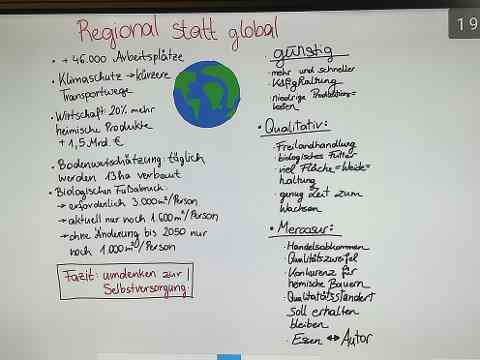 Regional statt global
• + 46.000 Arbeitsplätze
• Klimaschutz → kürzere
Transportwege
• Wirtschaft: 20% mehr
heimische Produkte
+ 1,5 Mrd. €
• Bodenwertschätzung: täglich
werden 13 ha verbaut
• Biologischer Fußabruck:
→ erforderlich 3.000m²/Person
→ aktuell nur noch 1.600m²/Person
→ ohne Änderung bis 2050 nur
noch 1.000m²/Person
Fazit: umdenken zur
Selbstversorgung
günstig
• mehr und schneller
• Käfighaltung
• niedrige Produktions=
kosten
• Qualitativ:
• Freilandhandlung
• biologisches Futter
• viel Fläche = Weide=
haltung
• genug Zeit zum
Wachsen
• Mercosur:
• Handelsabkommen
• Qualitätszweifel
• Konkurenz für
heimische Bauern
• Qualitatätsstandert
soll erhalten
bleiben
• Essen ↔ Autor
19